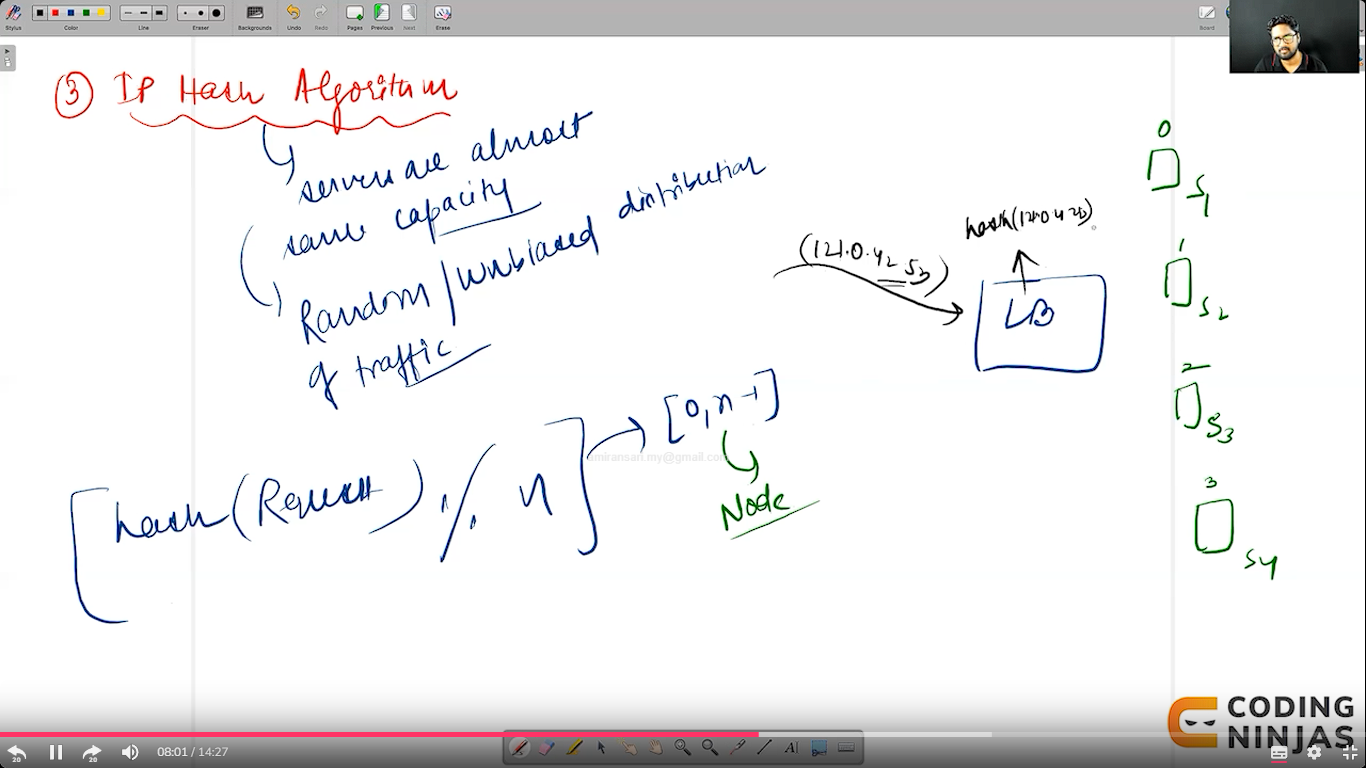 Stylus
Color
Line
Eraser
Backgrounds
Undo
Redo
Pages
Previous
Next
Erase
Board
③ IP Hash Algorithm
servers are almost
same capacity
Random/Unbiased distribution
of traffic
hash(Request) % n
[0, n-1]
Node
amiransari.my@gmail.com
hash(121.0.42
LB
0
S1
1
S2
2
S3
3
S4
CODING
NINJAS
20
20
08:01 / 14:27